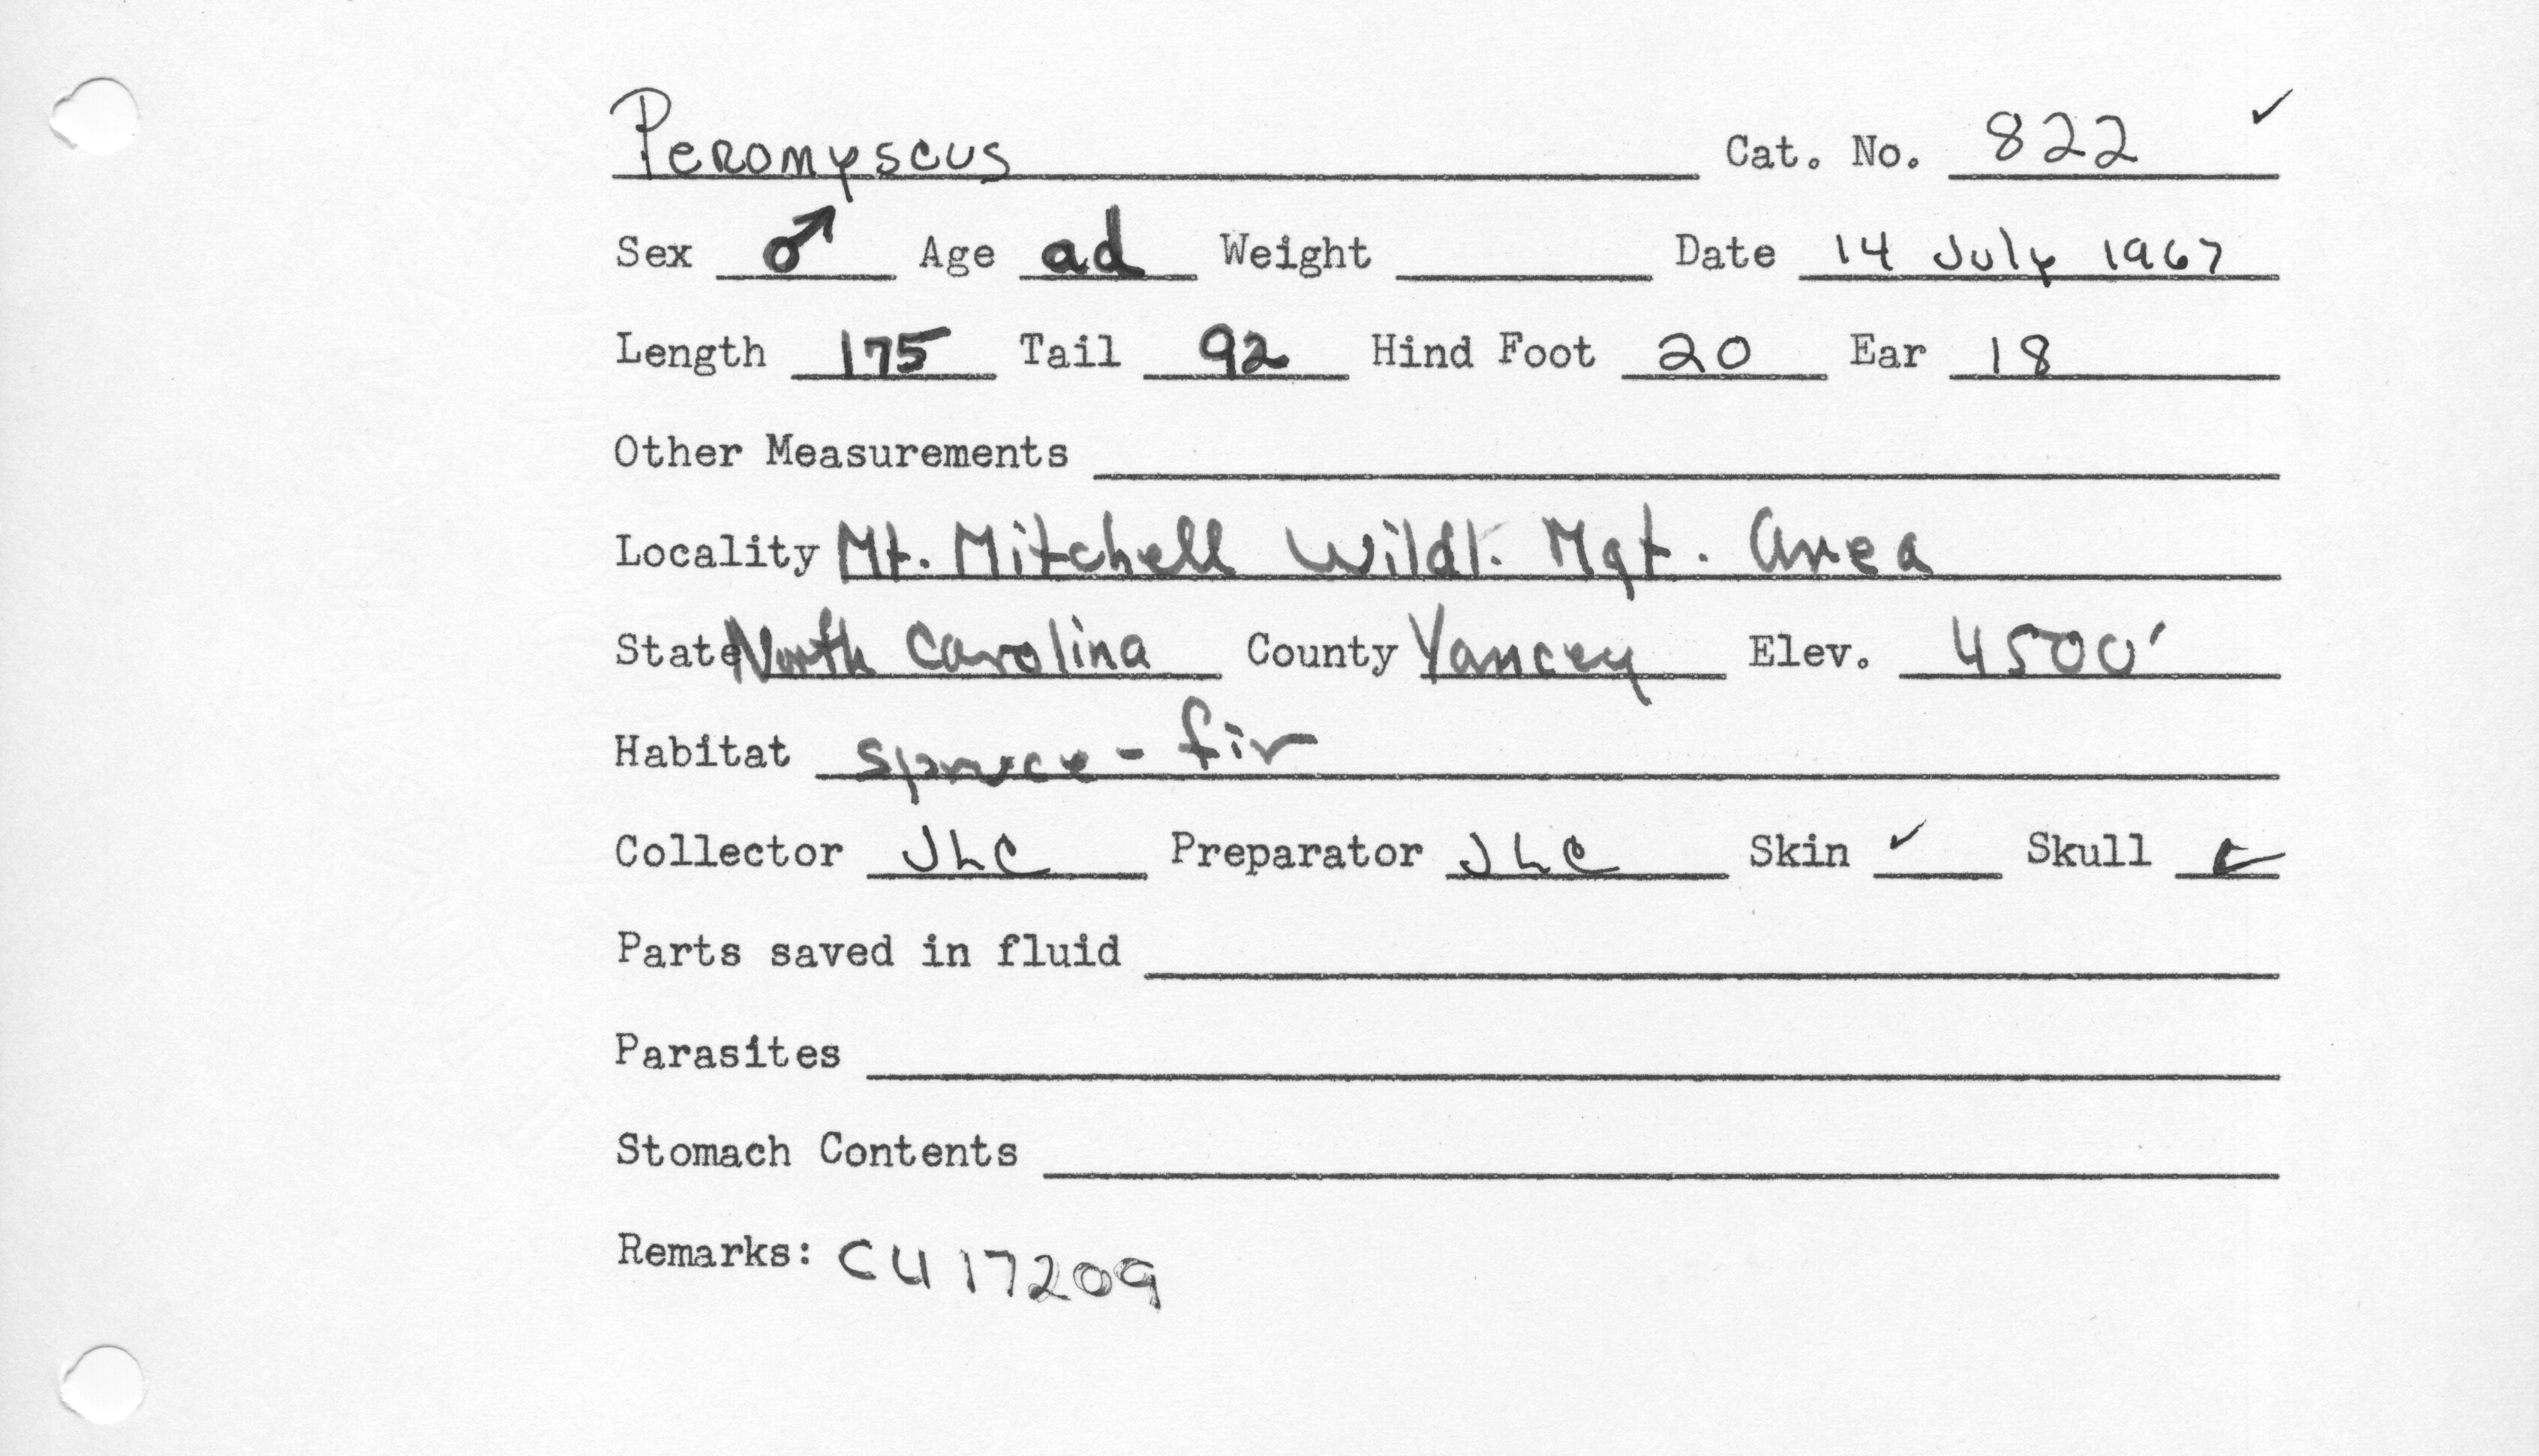 Peromyscus Cat. No. 822 ✓
Sex ♂ Age ad Weight Date 14 July 1967
Length 175 Tail 92 Hind Foot 20 Ear 18
Other Measurements
Locality Mt. Mitchell Wildl. Mgt. Area
State North Carolina County Yancey Elev. 4500'
Habitat spruce-fir
Collector JLC Preparator JLC Skin ✓ Skull ✓
Parts saved in fluid
Parasites
Stomach Contents
Remarks: CU 17209